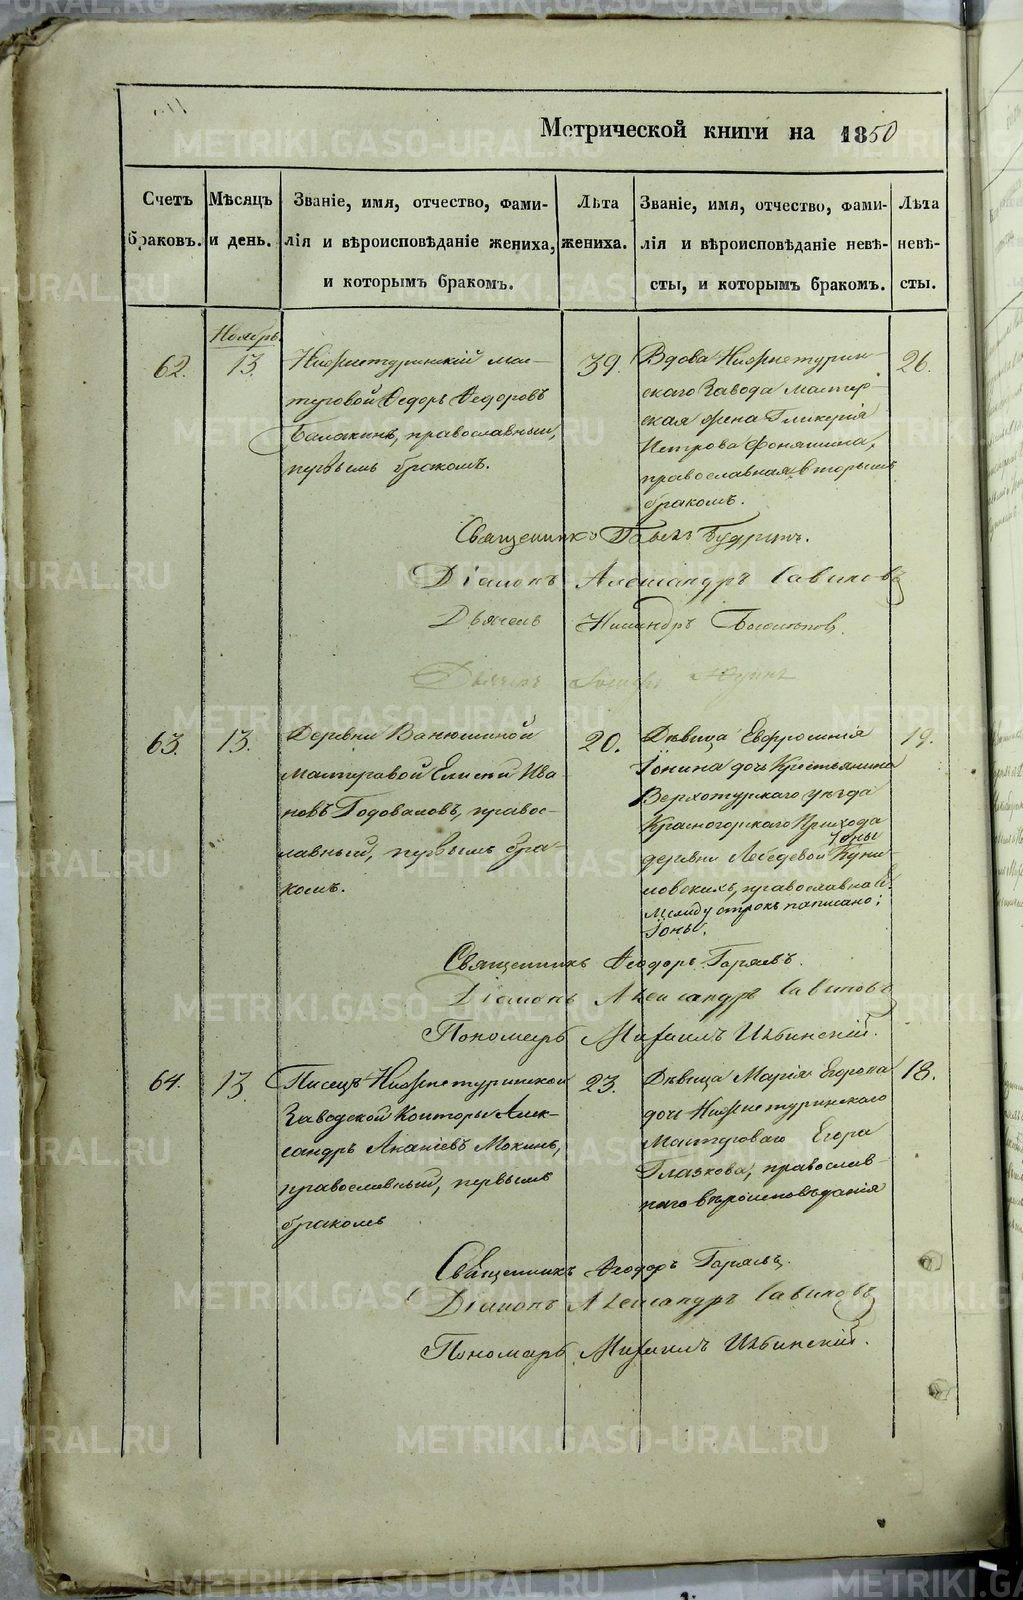 Метрической книги на 1850
Счетъ браковъ.
Мѣсяцъ и день.
Званіе, имя, отчество, фами-
лія и вѣроисповѣданіе жениха,
и которымъ бракомъ.
Лѣта жениха.
Званіе, имя, отчество, фами-
лія и вѣроисповѣданіе невѣ-
сты, и которымъ бракомъ.
Лѣта невѣ-
сты.
Ноябрь.
62.
13.
Нижнетуринскій мас-
теровой Ѳедоръ Ѳедоровъ
Балакинъ, православный,
первымъ бракомъ.
39.
Вдова Нижнетурин-
скаго Завода мастер-
ская жена Гликерія
Петрова
православная, вторымъ
бракомъ.
26.
Священникъ Павелъ Будринъ.
Діаконъ Александръ Савиновъ
Дьячекъ Никандръ
Дьячекъ
63.
13.
Деревни Ванюшиной
мастеровой Елисей Ива-
новъ Годоваловъ, правос-
лавный, первымъ бра-
комъ.
20.
Дѣвица Евфросинія
Іонина дочь Крестьянина
Верхотурскаго уѣзда
Красногорскаго Прихода
Іоны
деревни Лебедевой
православная.
Между строкъ написано:
Іоны.
19.
Священникъ Ѳеодоръ Горяевъ.
Діаконъ Александръ Савиновъ
Пономарь Михаилъ Ивбинскій.
64.
13.
Писецъ Нижнетуринской
Заводской Конторы Алек-
сандръ Ананіевъ Мокинъ,
православный, первымъ
бракомъ
23.
Дѣвица Марія Егорова
дочь Нижнетуринскаго
Мастероваго Егора
Глазкова, православ-
наго вѣроисповѣданія
18.
Священникъ Ѳеодоръ Горяевъ.
Діаконъ Александръ Савиновъ
Пономарь Михаилъ Ивбинскій.
METRIKI.GASO-URAL.RU